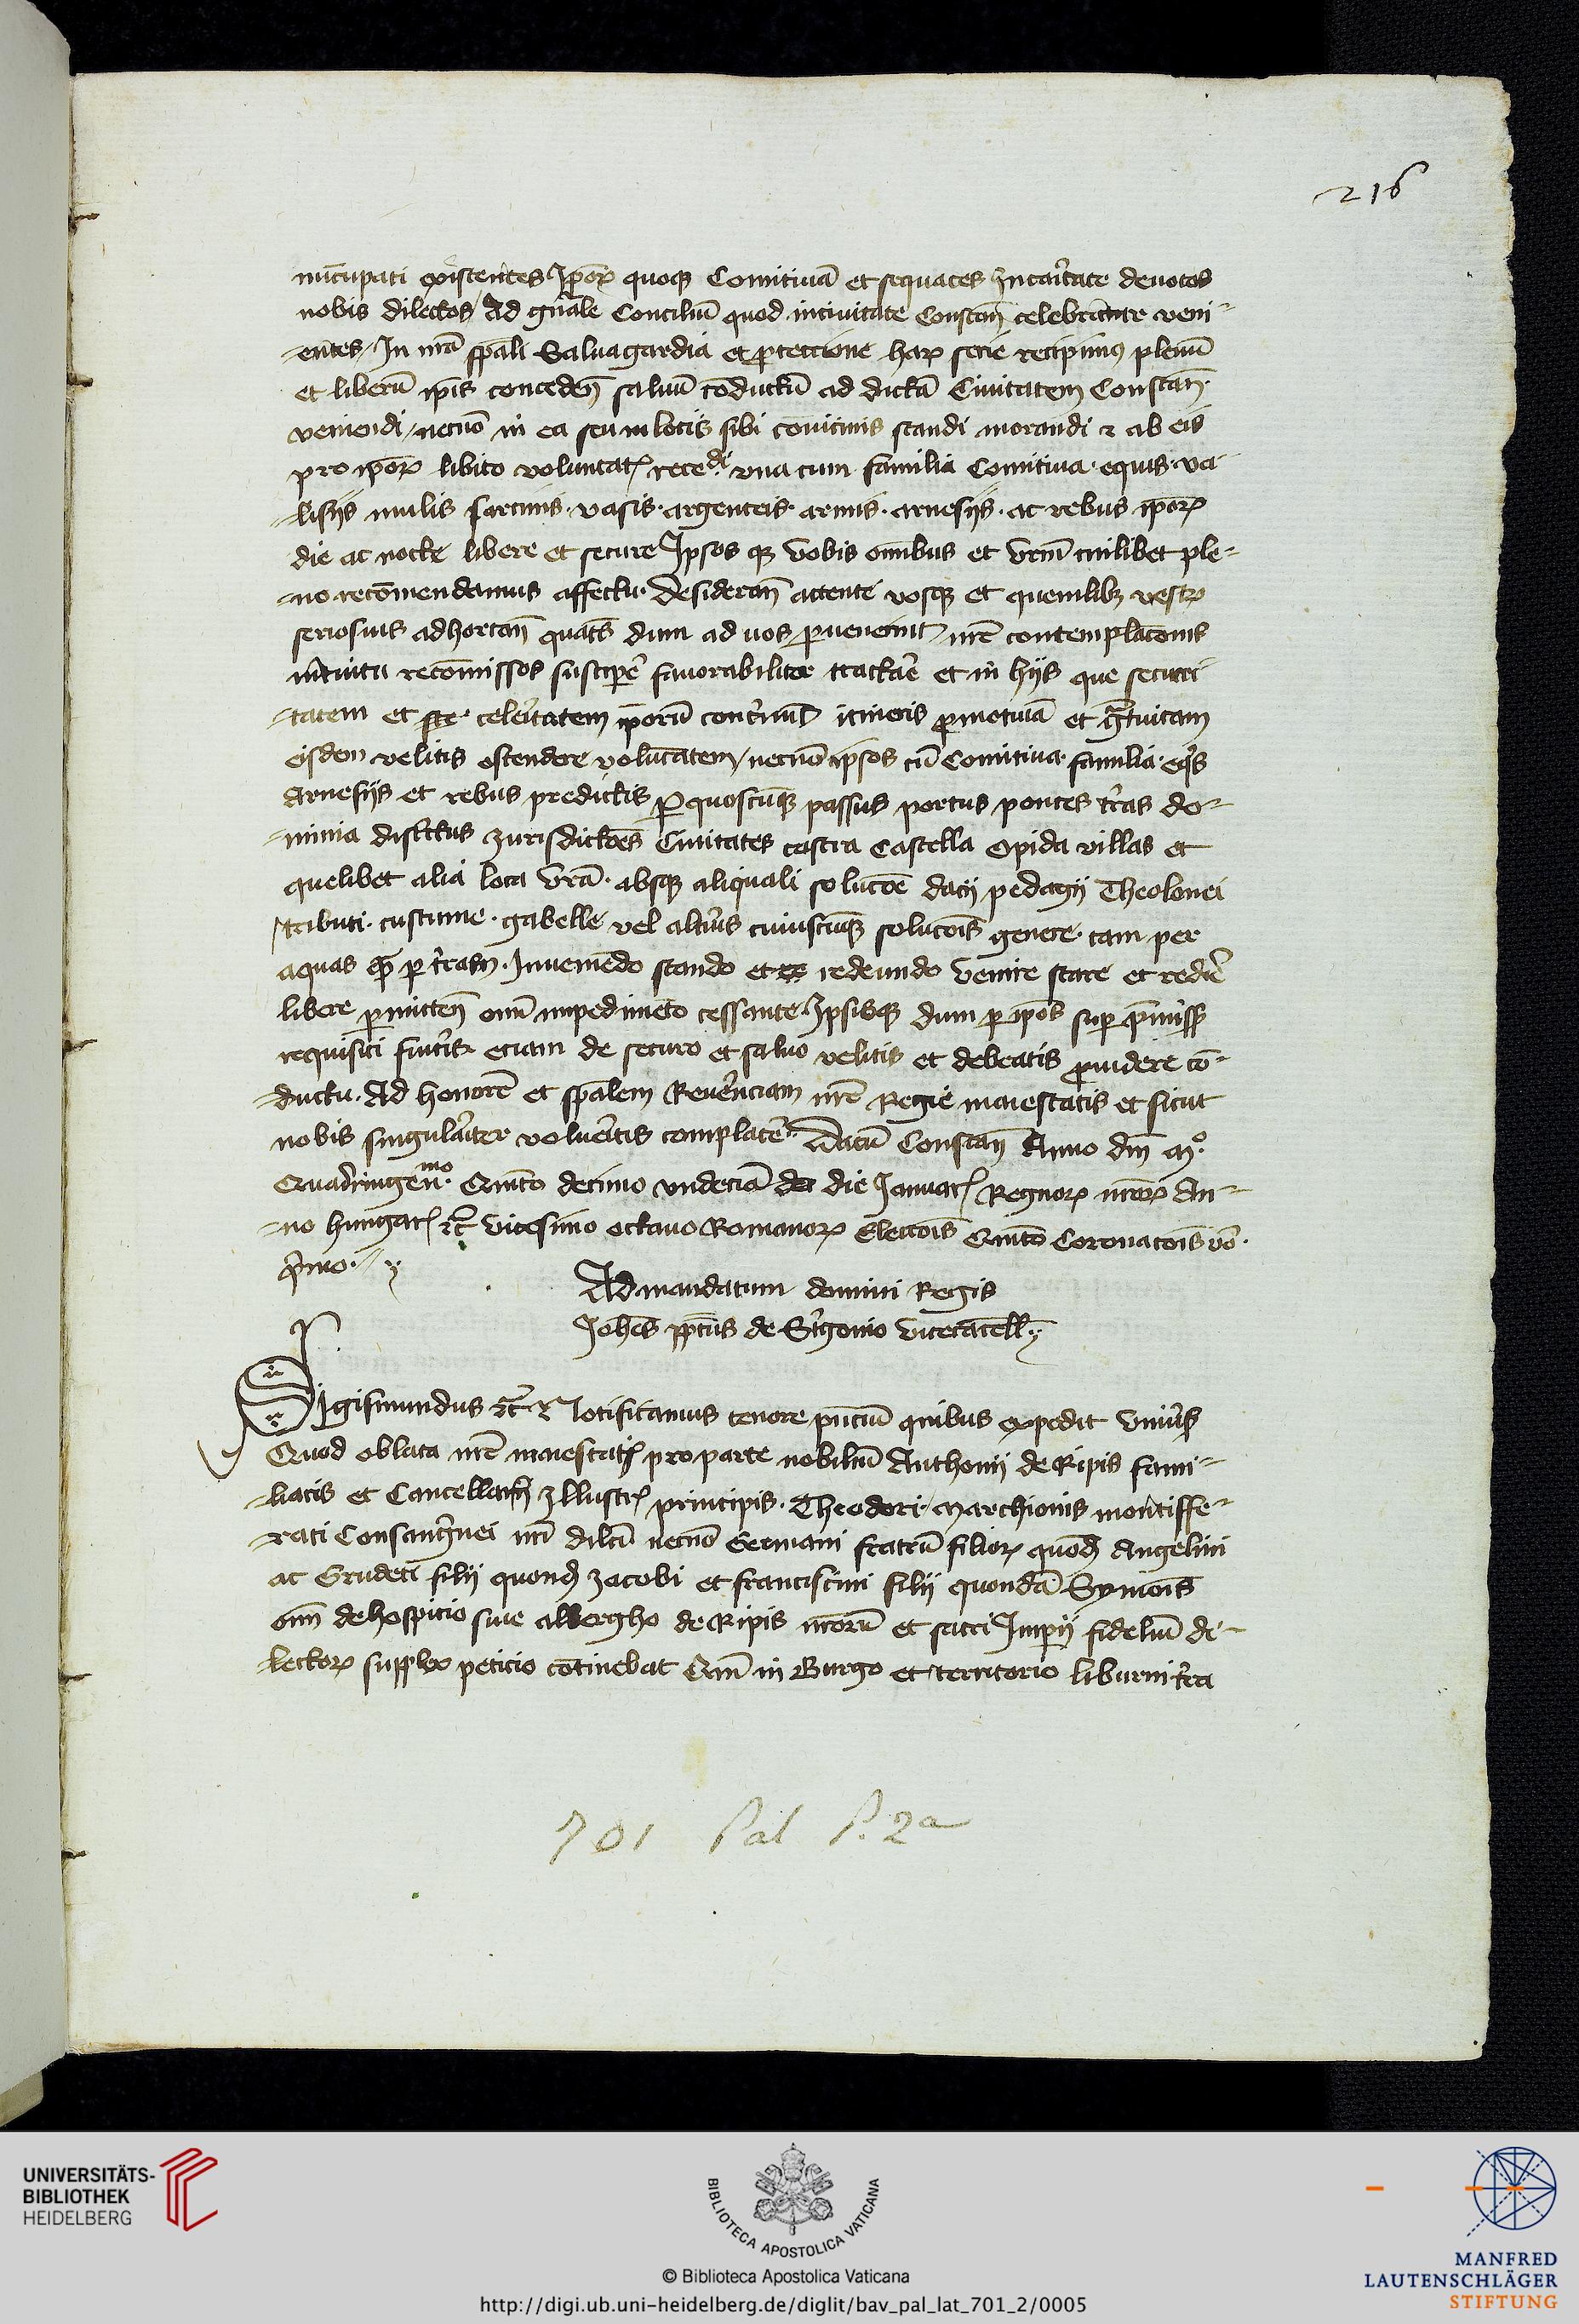 216
nu̅cupati existentes Ip̅oꝝ quoqꝫ Comitiua̅ et sequaces Incai̅tate deuotos
nobis dilectos Ad gn̅ale Conciliu̅ quod inciuitate Constan̅ celebra̅t veni-
-entes / In nr̅a sp̅ali Saluagardia et protectione haꝝ serie recipimus plenu̅
et liberu̅ ip̅is conceden̅ saluu̅ co̅ductu̅ ad dicta̅ Ciuitatem Constan̅
veniendi / necno̅ in ea seu in locis sibi co̅uicinis standi morandi ⁊ ab eis
pro ip̅oꝝ libito voluntatꝭ recedi vna cum familia Comitiua · equis · va-
-lisijs mulis sarcinis · vasis · argenteis · armis · arnesijs · ac rebus ip̅oꝝ
die ac nocte libere et secure Ipsos qꝫ vobis om̅ibus et vr̅m cuilibet ple-
-no reco̅mendamus affectu · desideran̅ attente vosqꝫ et quemlibꝫ vestꝝ
seriosius adhortan̅ quat̅s dum ad uos peruenerint nr̅e contemplac̅onis
intuitu reco̅missos suscipe̅ fauorabiliter tracta̅e et in hijs que securi
-tatem et celeritatem ip̅oru̅ itineris promotiua̅ et gr̅tuitam
eisdem velitis ostendere volu̅tatem / necno̅ ipsos cu̅ Comitiua · familia · eqⁱs
Arnesijs et rebus predictis per quoscu̅qꝫ passus portus pontes tr̅as do-
-minia districtus Jurisdictōes Ciuitates castra Castella Opida villas et
quelibet alia loca vr̅a · absqꝫ aliquali soluco̅e dacij pedagij Theolonei
tributi · custume · gabelle vel alt̅ius cuiuscu̅qꝫ soluco̅is genere · tam per
aquas qua̅ per tr̅am · In veniendo stando et redeundo venire stare et redi̅e
libere permitten̅ omi̅ impedime̅to cessante Ipsisqꝫ dum per ip̅os super premiss
requisiti fu̅itis eciam de securo et saluo velitis et debeatis prouidere co̅-
-ductu · Ad honore̅ et sp̅alem Reuere̅nciam nr̅e Regie maiestatis et sicut
nobis singula̅iter volue̅itis complace̅ Datu̅ Constan̅ Anno dn̅i mº
Quadringen̅ᵐᵒ Quinto decimo vndecia̅ die Januarꝭ Regnoꝝ nr̅oꝝ An-
-no hungarꝭ ⁊c̅ vicesimo octauo Romanoꝝ Electo̅is Quinto Coronaco̅is vo̅
primo
Ad mandatum domini Regis
Joh̅es pp̅itus de Strigonio vicecancell
Sigismundus ⁊c̅ Notificamus tenore pn̅ciu̅ quibus expedit vniu̅s
Quod oblata nr̅e maiestatꝭ pro parte nobiliu̅ Anthonij de Ripis fami-
-liaris et Cancellarij Jllustrꝭ principis · Theodori / Marchionis montisffe-
-rati Consanguinei nr̅i dilc̅i necno̅ Germani fratru̅ filioꝝ quond Angelini
ac Grudeti filij quond Jacobi et francistini filij quonda̅ Symo̅is
om̅i de hospicio siue albergho de Ripis nr̅oru̅ et sacri Imp̅ij fideliu̅ di-
-lectoꝝ supplex peticio co̅tinebat Qm̅ in Burgo et territorio liburni cr̅a
701 Pal P. 2ª
UNIVERSITÄTS-
BIBLIOTHEK
HEIDELBERG
BIBLIOTECA APOSTOLICA VATICANA
© Biblioteca Apostolica Vaticana
http://digi.ub.uni-heidelberg.de/diglit/bav_pal_lat_701_2/0005
MANFRED
LAUTENSCHLÄGER
STIFTUNG